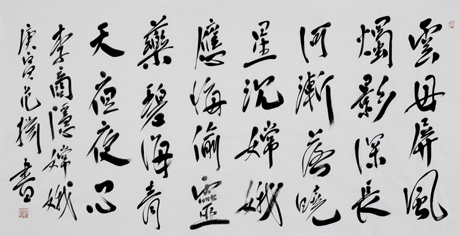 雲母屏風
燭影深長
河漸落曉
星沉嫦娥
應悔偷靈
藥碧海青
天夜夜心
李商隱嫦娥
庚寅范揚書